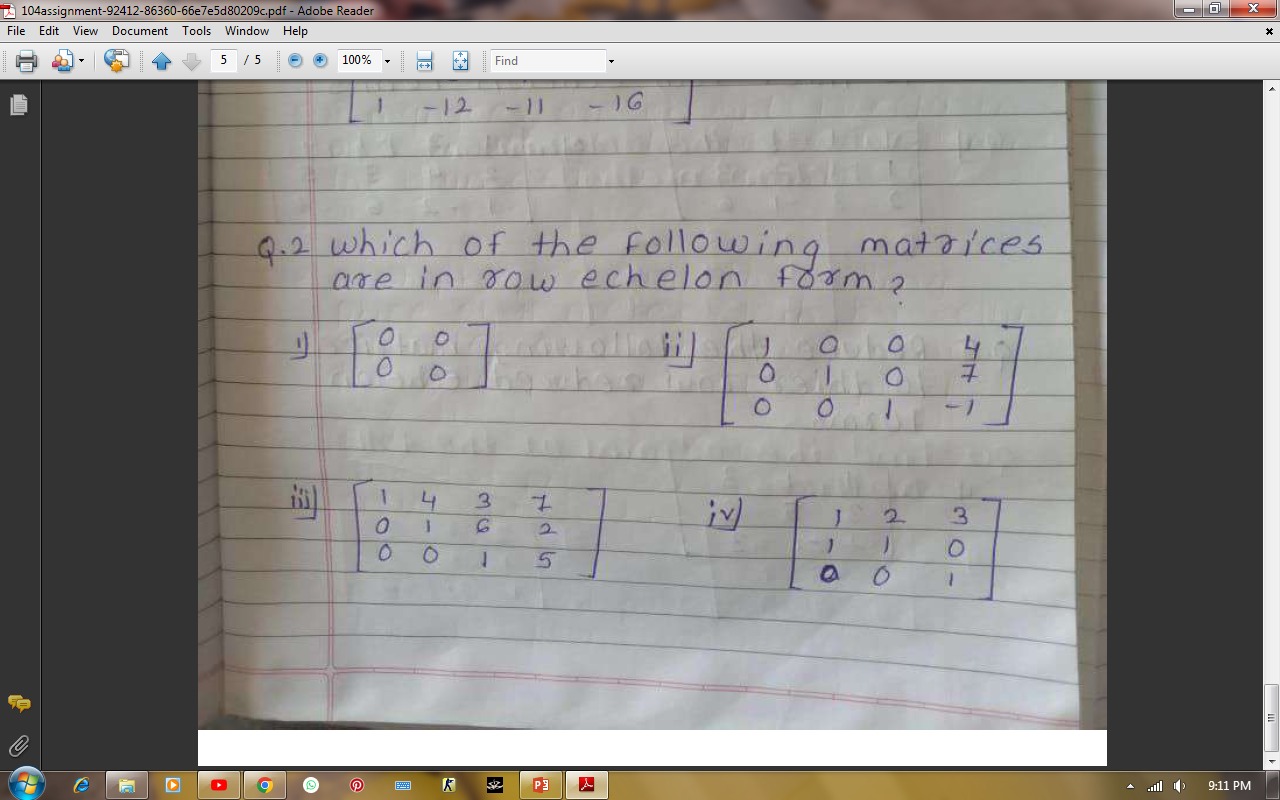 104assignment-92412-86360-66e7e5d80209c.pdf - Adobe Reader
File Edit View Document Tools Window Help
5 / 5 100% Find
1 -12 -11 -16
Q.2 which of the following matrices
are in row echelon form?
i) 0 0
0 0
ii) 1 0 0 4
0 1 0 7
0 0 1 -1
iii) 1 4 3 7
0 1 6 2
0 0 1 5
iv) 1 2 3
1 1 0
0 0 1
9:11 PM